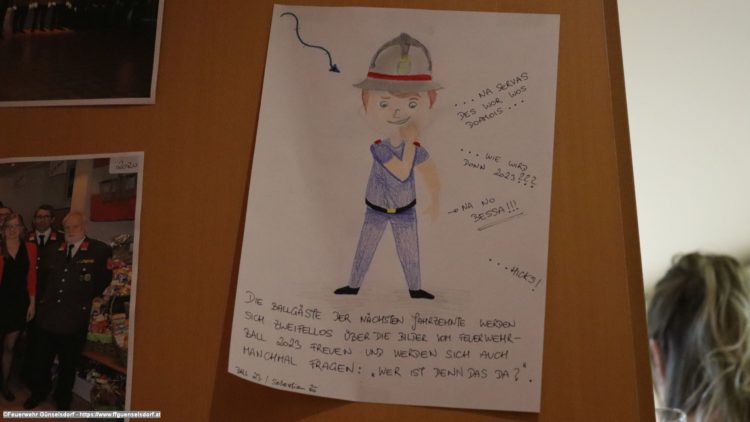 2020
... NA SERVAS
DES WOR WOS
DOAMOIS...
... WIE WIRD
DONN 2023???
→ NA NO
BESSA!!!
... HICKS!
DIE BALLGÄSTE DER NÄCHSTEN JAHRZEHNTE WERDEN
SICH ZWEIFELLOS ÜBER DIE BILDER VOM FEUERWEHR-
BALL 2023 FREUEN UND WERDEN SICH AUCH
MANCHMAL FRAGEN: „WER IST DENN DAS DA?“.
BALL 23 / Sebastian
©Feuerwehr Günselsdorf - https://www.ffguenselsdorf.at